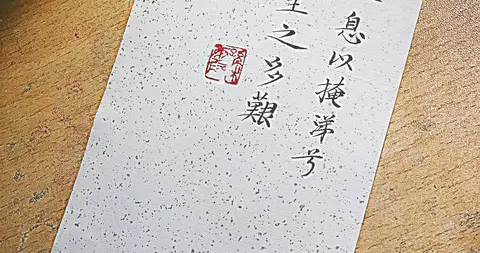 息以掩涕兮
生之多艱